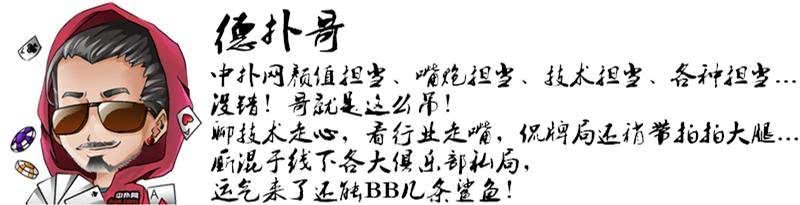 德扑哥
中扑网颜值担当、嘴炮担当、技术担当、各种担当...
没错！哥就是这么吊！
聊技术走心，看行业走嘴，侃牌局还稍带拍拍大腿...
厮混于线下各大俱乐部私局，
运气来了还能BB几条鲨鱼！
中扑网
A